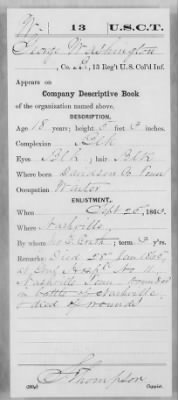 W. 13 U.S.C.T.
George Washington
, Co. , 13 Reg't U.S. Col'd Inf.
Appears on
Company Descriptive Book
of the organization named above.
DESCRIPTION.
Age 18 years; height 5 feet 6 inches.
Complexion Blk
Eyes Blk ; hair Blk
Where born Davidson Co Tenn
Occupation Waiter
ENLISTMENT.
When Sept 25, 186
Where Nashville
By whom ; term 3 y'rs.
Remarks: Died 25" Jan 1865,
at Genl Hosp'l No 11
Nashville Tenn Wounded
in battle of Nashville
& died of wounds
Thompson
Copyist.